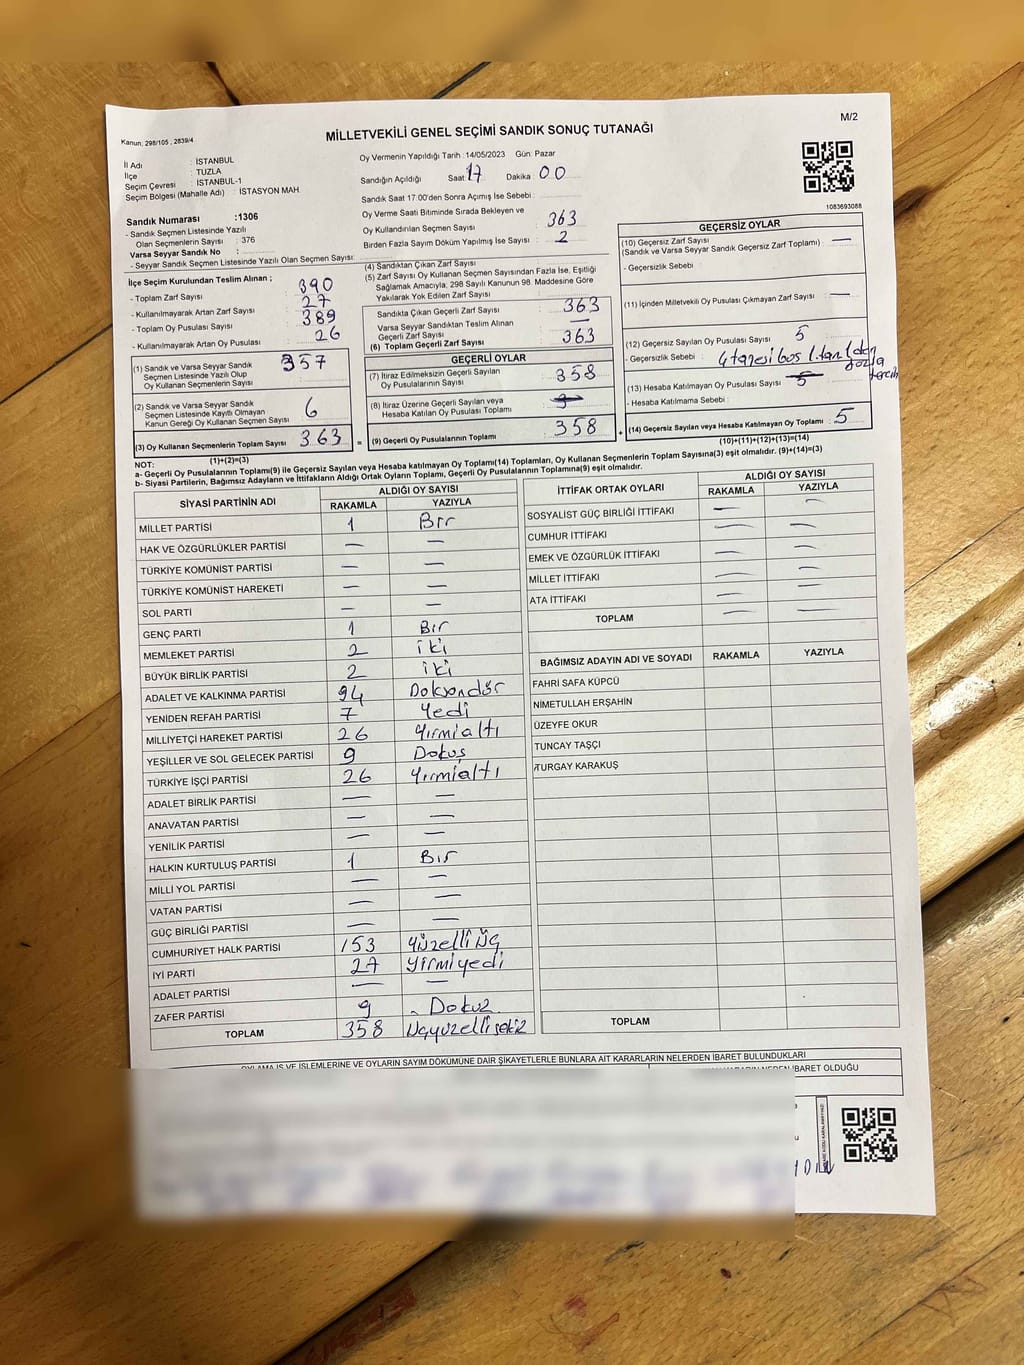 M/2
Kanun: 298/105 , 2839/4
MİLLETVEKİLİ GENEL SEÇİMİ SANDIK SONUÇ TUTANAĞI
İl Adı : İSTANBUL
İlçe : TUZLA
Seçim Çevresi : İSTANBUL-1
Seçim Bölgesi (Mahalle Adı) : İSTASYON MAH.
Sandık Numarası :1306
- Sandık Seçmen Listesinde Yazılı
Olan Seçmenlerin Sayısı : 376
Varsa Seyyar Sandık No :
- Seyyar Sandık Seçmen Listesinde Yazılı Olan Seçmen Sayısı:
Oy Vermenin Yapıldığı Tarih : 14/05/2023 Gün: Pazar
Sandığın Açıldığı Saat: 17 Dakika 00
Sandık Saat 17:00'den Sonra Açımış İse Sebebi :
Oy Verme Saati Bitiminde Sırada Bekleyen ve
Oy Kullandırılan Seçmen Sayısı : 363
Birden Fazla Sayım Döküm Yapılmış İse Sayısı : 2
1083693088
İlçe Seçim Kurulundan Teslim Alınan ;
- Toplam Zarf Sayısı : 390
- Kullanılmayarak Artan Zarf Sayısı : 27
- Toplam Oy Pusulası Sayısı : 389
- Kullanılmayarak Artan Oy Pusulası : 26
(1) Sandık ve Varsa Seyyar Sandık
Seçmen Listesinde Yazılı Olup
Oy Kullanan Seçmenlerin Sayısı : 357
(2) Sandık ve Varsa Seyyar Sandık
Seçmen Listesinde Kayıtlı Olmayan
Kanun Gereği Oy Kullanan Seçmen Sayısı : 6
(3) Oy Kullanan Seçmenlerin Toplam Sayısı : 363 =
(1)+(2)=(3)
(4) Sandıktan Çıkan Zarf Sayısı
(5) Zarf Sayısı Oy Kullanan Seçmen Sayısından Fazla İse, Eşitliği
Sağlamak Amacıyla, 298 Sayılı Kanunun 98. Maddesine Göre
Yakılarak Yok Edilen Zarf Sayısı :
Sandıkta Çıkan Geçerli Zarf Sayısı : 363
Varsa Seyyar Sandıktan Teslim Alınan
Geçerli Zarf Sayısı : —
(6) Toplam Geçerli Zarf Sayısı : 363
GEÇERLİ OYLAR
(7) İtiraz Edilmeksizin Geçerli Sayılan
Oy Pusulalarının Sayısı : 358
(8) İtiraz Üzerine Geçerli Sayılan veya
Hesaba Katılan Oy Pusulası Toplamı :
(9) Geçerli Oy Pusulalarının Toplamı : 358 +
GEÇERSİZ OYLAR
(10) Geçersiz Zarf Sayısı : —
(Sandık ve Varsa Seyyar Sandık Geçersiz Zarf Toplamı)
- Geçersizlik Sebebi :
(11) İçinden Milletvekili Oy Pusulası Çıkmayan Zarf Sayısı : —
(12) Geçersiz Sayılan Oy Pusulası Sayısı : 5
- Geçersizlik Sebebi : 4 tanesi boş 1 tanı(den fazla tercih
(13) Hesaba Katılmayan Oy Pusulası Sayısı :
- Hesaba Katılmama Sebebi :
(14) Geçersiz Sayılan veya Hesaba Katılmayan Oy Toplamı : 5
(10)+(11)+(12)+(13)=(14)
NOT:
a- Geçerli Oy Pusulalarının Toplamı(9) ile Geçersiz Sayılan veya Hesaba katılmayan Oy Toplamı(14) Toplamları, Oy Kullanan Seçmenlerin Toplam Sayısına(3) eşit olmalıdır. (9)+(14)=(3)
b- Siyasi Partilerin, Bağımsız Adayların ve İttifakların Aldığı Ortak Oyların Toplamı, Geçerli Oy Pusulalarının Toplamına(9) eşit olmalıdır.
SİYASİ PARTİNİN ADI ALDIĞI OY SAYISI
RAKAMLA YAZIYLA
MİLLET PARTİSİ 1 Bir
HAK VE ÖZGÜRLÜKLER PARTİSİ — —
TÜRKİYE KOMÜNİST PARTİSİ — —
TÜRKİYE KOMÜNİST HAREKETİ — —
SOL PARTİ — —
GENÇ PARTİ 1 Bir
MEMLEKET PARTİSİ 2 iki
BÜYÜK BİRLİK PARTİSİ 2 iki
ADALET VE KALKINMA PARTİSİ 94 Doksandör
YENİDEN REFAH PARTİSİ 7 Yedi
MİLLİYETÇİ HAREKET PARTİSİ 26 Yirmialtı
YEŞİLLER VE SOL GELECEK PARTİSİ 9 Dokuş
TÜRKİYE İŞÇİ PARTİSİ 26 Yirmialtı
ADALET BİRLİK PARTİSİ — —
ANAVATAN PARTİSİ — —
YENİLİK PARTİSİ — —
HALKIN KURTULUŞ PARTİSİ 1 Bir
MİLLİ YOL PARTİSİ — —
VATAN PARTİSİ — —
GÜÇ BİRLİĞİ PARTİSİ — —
CUMHURİYET HALK PARTİSİ 153 Yüzelli üç
İYİ PARTİ 27 Yirmiyedi
ADALET PARTİSİ — —
ZAFER PARTİSİ 9 Dokuz
TOPLAM 358 Üçyüzellisekiz
İTTİFAK ORTAK OYLARI ALDIĞI OY SAYISI
RAKAMLA YAZIYLA
SOSYALİST GÜÇ BİRLİĞİ İTTİFAKI — —
CUMHUR İTTİFAKI — —
EMEK VE ÖZGÜRLÜK İTTİFAKI — —
MİLLET İTTİFAKI — —
ATA İTTİFAKI — —
TOPLAM — —
BAĞIMSIZ ADAYIN ADI VE SOYADI RAKAMLA YAZIYLA
FAHRİ SAFA KÜPCÜ
NİMETULLAH ERŞAHİN
ÜZEYFE OKUR
TUNCAY TAŞÇI
TURGAY KARAKUŞ
TOPLAM
OYLAMA İŞ VE İŞLEMLERİNE VE OYLARIN SAYIM DÖKÜMÜNE DAİR ŞİKAYETLERLE BUNLARA AİT KARARLARIN NELERDEN İBARET BULUNDUKLARI
İBARET OLDUĞU